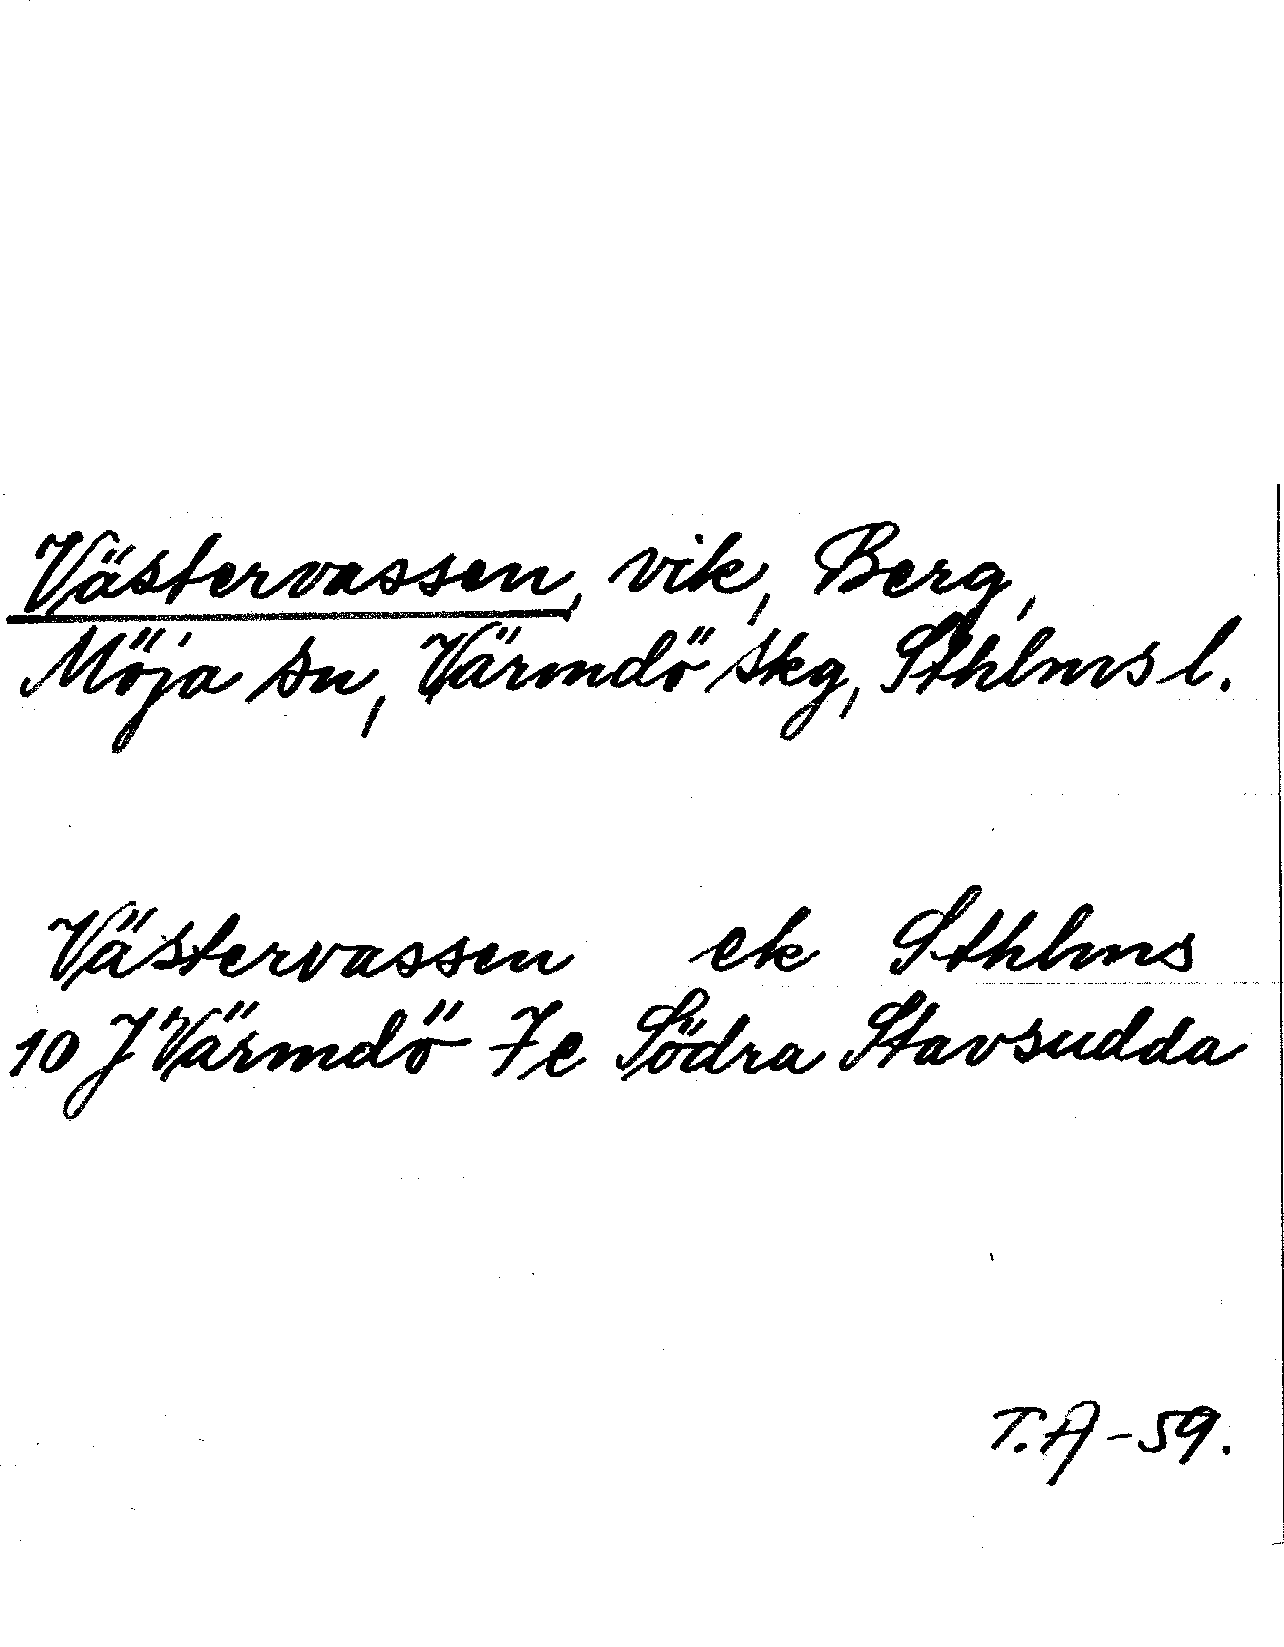 Västervassen, vik, Berg,
Möja sn, Värmdö skg, Sthlms l.
Västervassen ek Sthlms
10 J Värmdö 7e Södra Stavsudda
T.A-59.